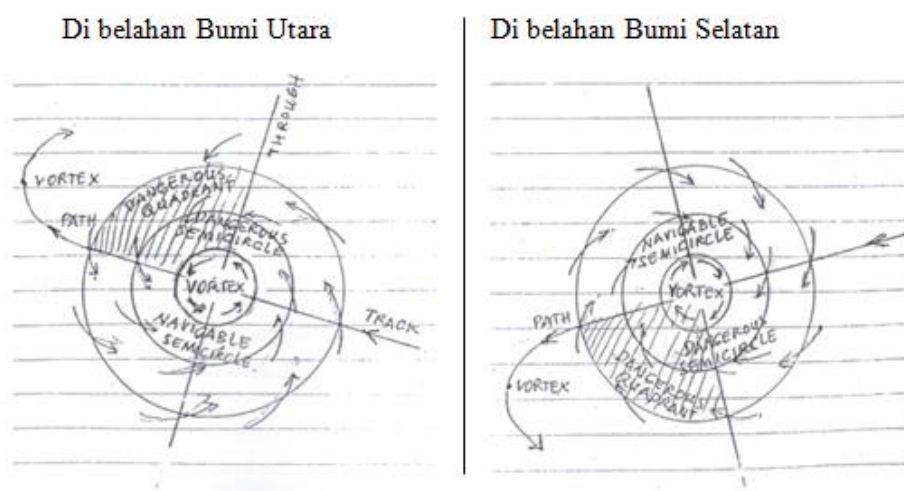 Di belahan Bumi Utara
THROUGH
VORTEX
DANGEROUS
QUADRANT
PATH
DANGEROUS
SEMICIRCLE
VORTEX
NAVIGABLE
SEMICIRCLE
TRACK
Di belahan Bumi Selatan
NAVIGABLE
SEMICIRCLE
VORTEX
PATH
DANGEROUS
SEMICIRCLE
DANGEROUS
QUADRANT
VORTEX